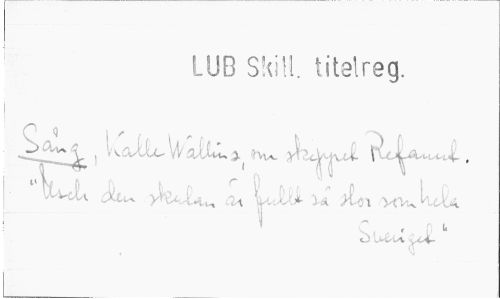 LUB Skill. titelreg.
Sång, Kalle Wallins, om skeppet Refanut.
"Usch den skutan är fullt så stor som hela
Sveriget"